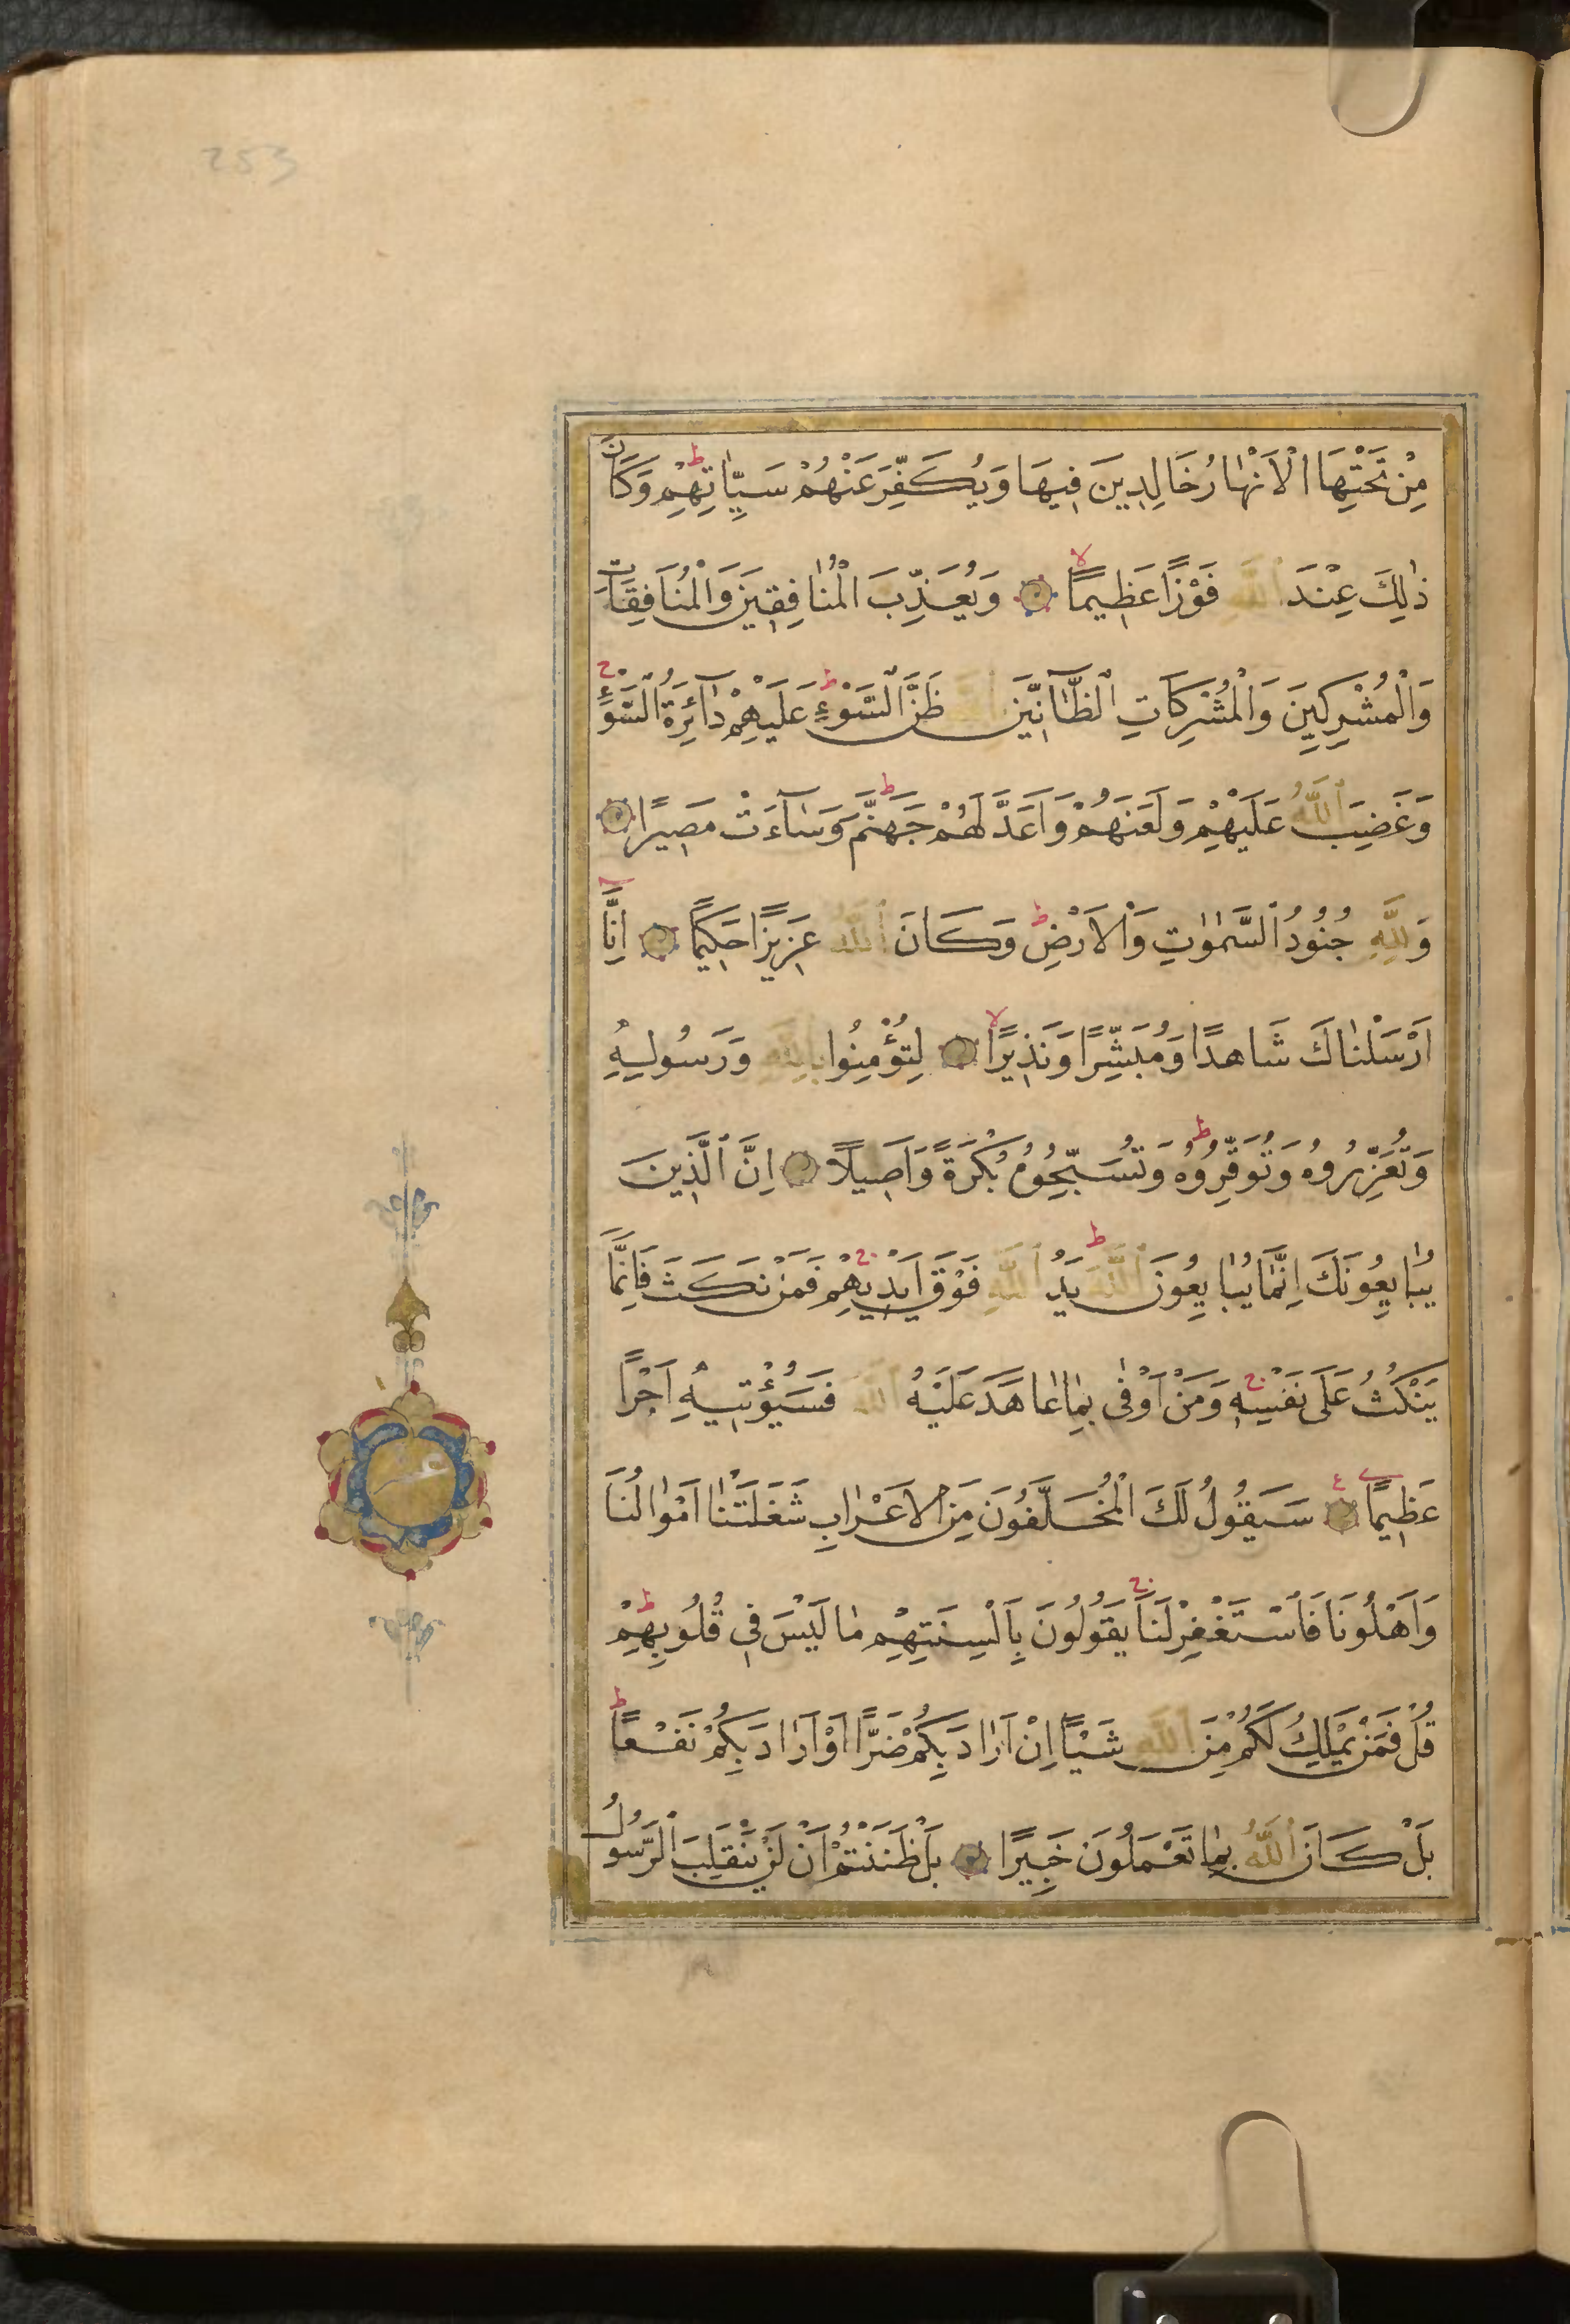 253
مِنْ تَحْتِهَا الْاَنْهٰارُ خَالِدِينَ فِيهَا وَيُكَفِّرَ عَنْهُمْ سَيِّاٰتِهِمْ ط وَكَانَ
ذٰلِكَ عِنْدَ اللّٰهِ فَوْزًا عَظِيمًا لا وَيُعَذِّبَ الْمُنٰافِقِينَ وَالْمُنَافِقَاتِ
وَالْمُشْرِكِينَ وَالْمُشْرِكَاتِ الظَّٓانِّينَ بِاللّٰهِ ظَنَّ السَّوْءِ ط عَلَيْهِمْ دَٓائِرَةُ السَّوْءِ ج
وَغَضِبَ اللّٰهُ عَلَيْهِمْ وَلَعَنَهُمْ وَاَعَدَّ لَهُمْ جَهَنَّمَ ط وَسَٓاءَتْ مَصِيرًا
وَلِلّٰهِ جُنُودُ السَّمٰوٰتِ وَالْاَرْضِ ط وَكَانَ اللّٰهُ عَزِيزًا حَكِيمًا اِنَّا
اَرْسَلْنٰاكَ شَاهِدًا وَمُبَشِّرًا وَنَذِيرًا لا لِتُؤْمِنُوا بِاللّٰهِ وَرَسُولِهِ
وَتُعَزِّرُوهُ وَتُوَقِّرُوهُ ط وَتُسَبِّحُوهُ بُكْرَةً وَاَصِيلًا اِنَّ الَّذِينَ
يُبٰايِعُونَكَ اِنَّمٰا يُبٰايِعُونَ اللّٰهَ ط يَدُ اللّٰهِ فَوْقَ اَيْدِيهِمْ ج فَمَنْ نَكَثَ فَاِنَّمَا
يَنْكُثُ عَلَى نَفْسِهِ ج وَمَنْ اَوْفٰى بِمٰا عٰاهَدَ عَلَيْهُ اللّٰهَ فَسَيُؤْتِيهِ اَجْرًا
عَظِيمًا ع سَيَقُولُ لَكَ الْمُخَلَّفُونَ مِنَ الْاَعْرٰابِ شَغَلَتْنٰا اَمْوٰالُنَا
وَاَهْلُونَا فَاسْتَغْفِرْ لَنَا ج يَقُولُونَ بِاَلْسِنَتِهِمْ مٰا لَيْسَ فِي قُلُوبِهِمْ ط
قُلْ فَمَنْ يَمْلِكُ لَكُمْ مِنَ اللّٰهِ شَيْـًٔا اِنْ اَرَادَ بِكُمْ ضَرًّا اَوْ اَرَادَ بِكُمْ نَفْعًا ط
بَلْ كَانَ اللّٰهُ بِمٰا تَعْمَلُونَ خَبِيرًا بَلْ ظَنَنْتُمْ اَنْ لَنْ يَنْقَلِبَ الرَّسُولُ
عشر